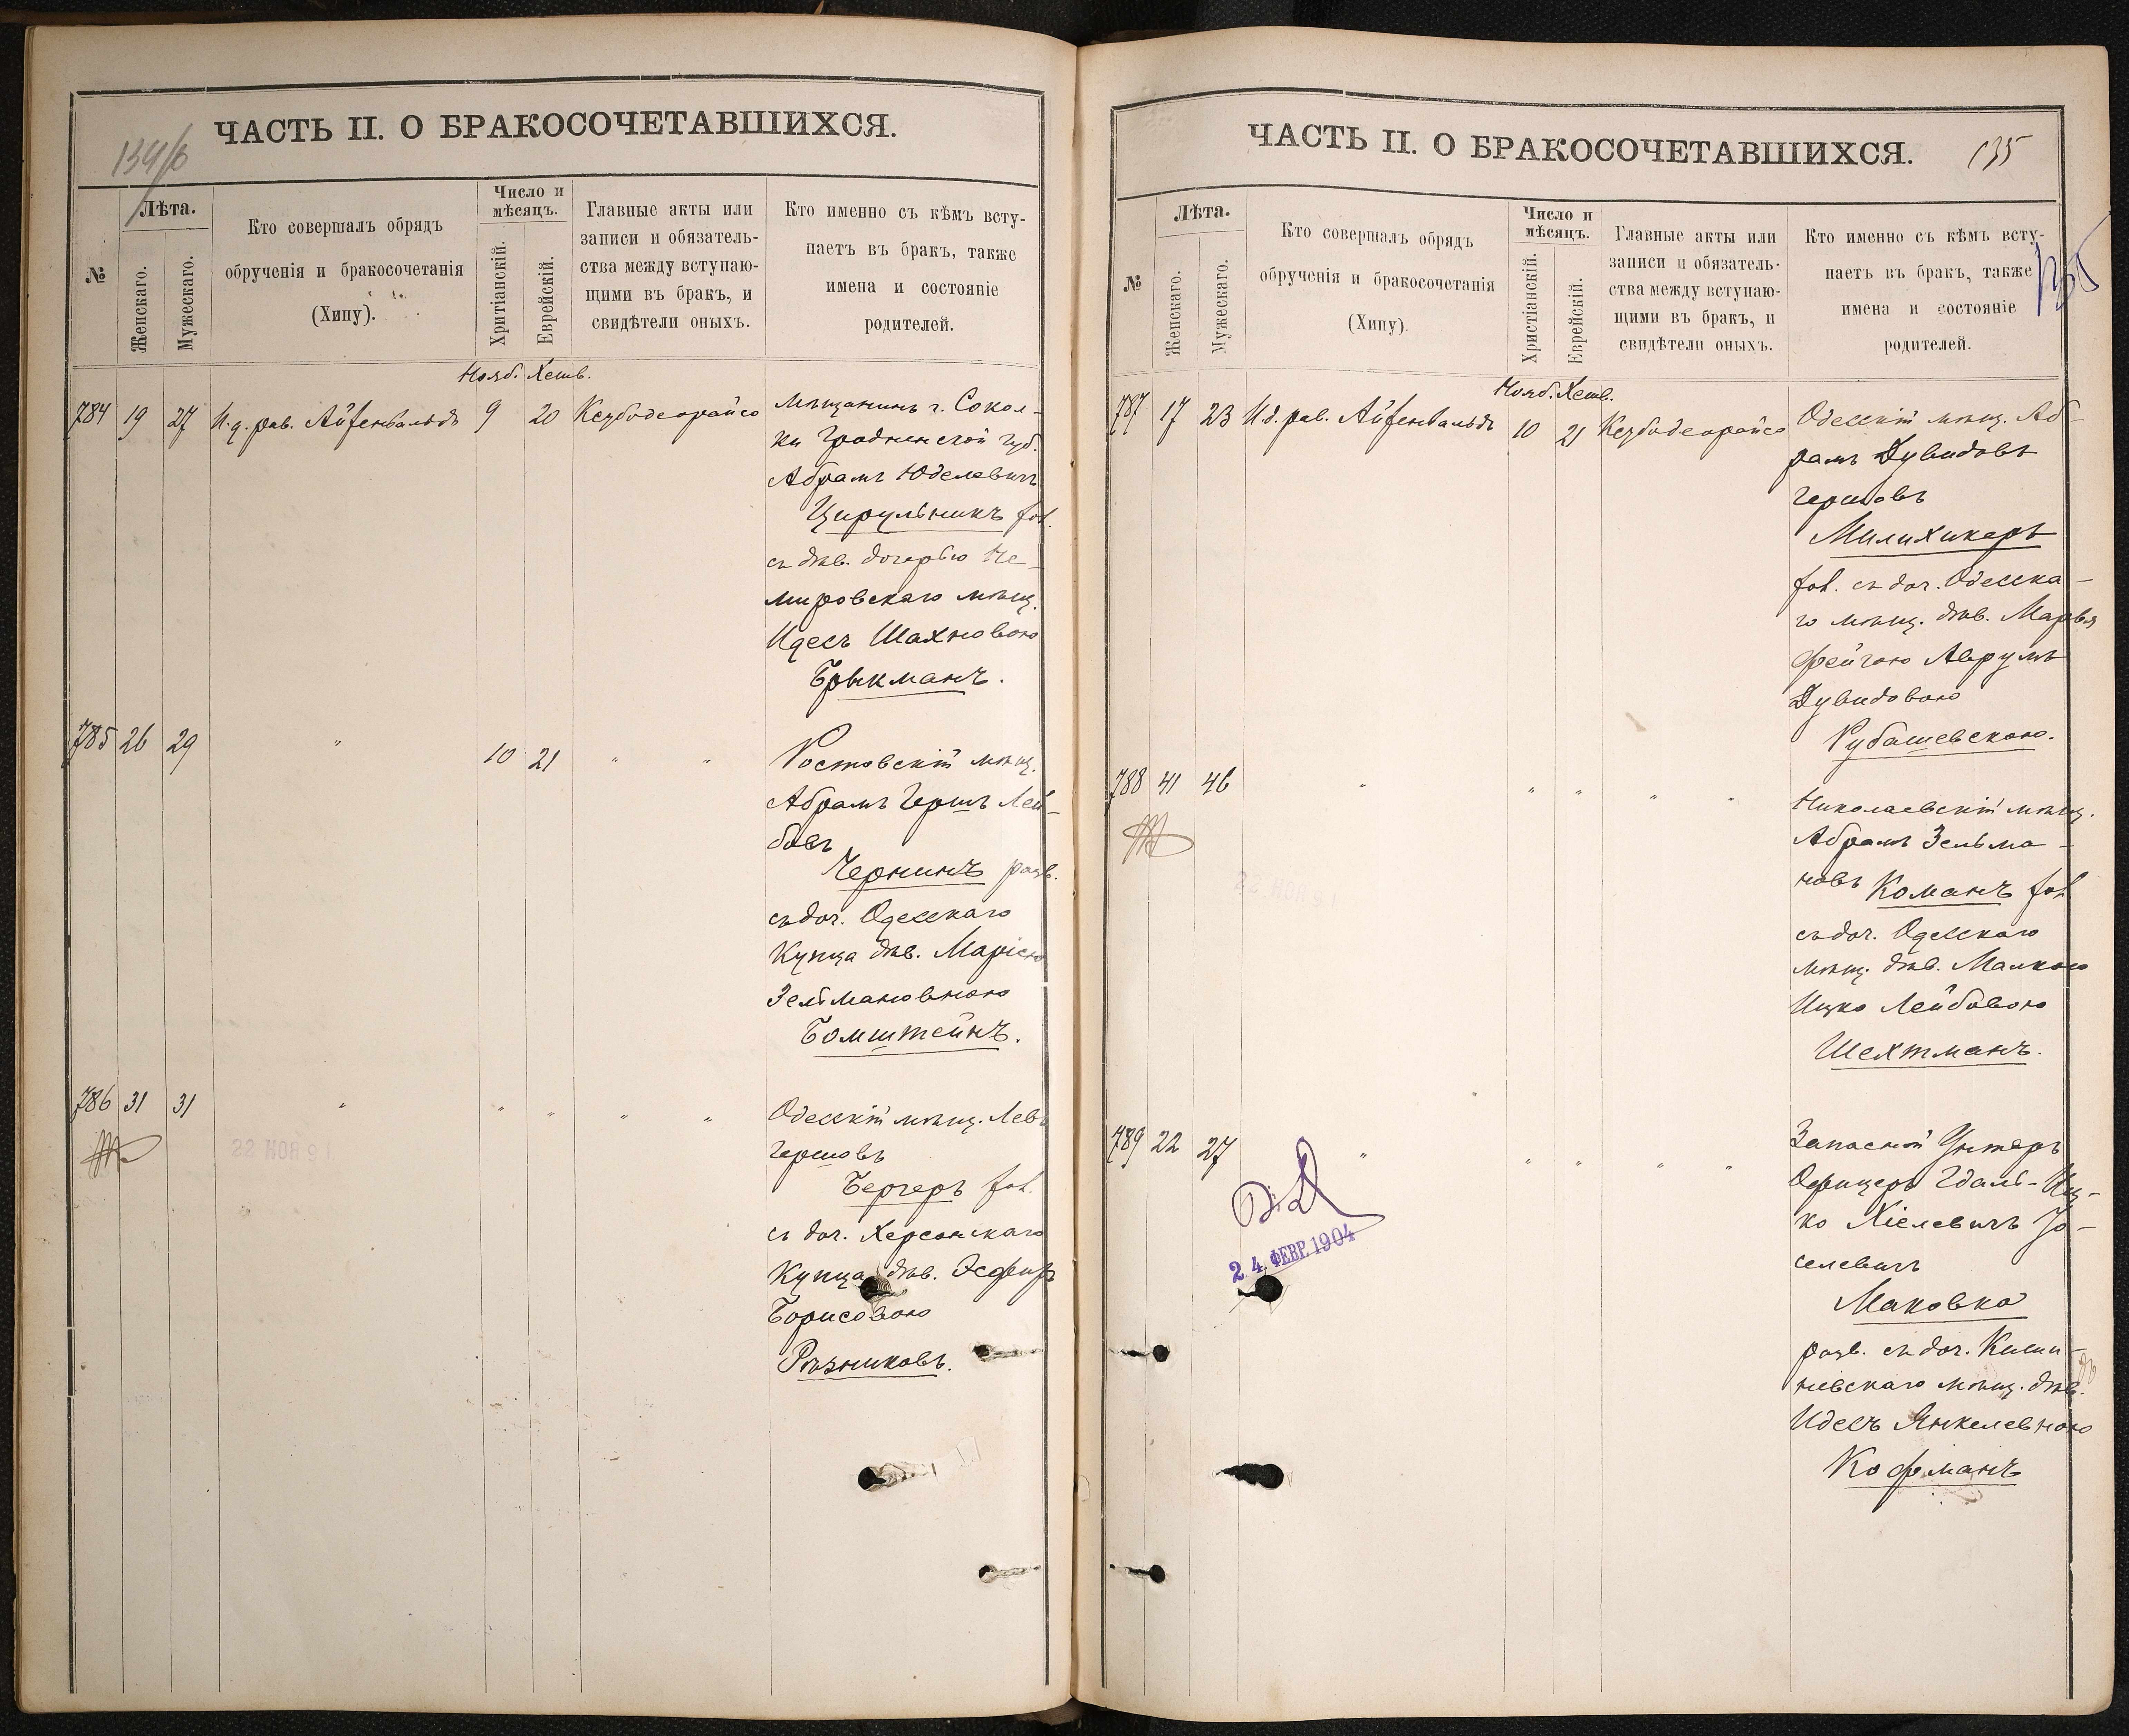 134/б
ЧАСТЬ II. О БРАКОСОЧЕТАВШИХСЯ.
№
Лѣта.
Женскаго.
Мужескаго.
Кто совершалъ обрядъ
обрученія и бракосочетанія
(Хипу).
Число и
мѣсяцъ.
Хритіанскій.
Еврейскій.
Главные акты или
записи и обязатель-
ства между вступаю-
щими въ бракъ, и
свидѣтели оныхъ.
Кто именно съ кѣмъ всту-
паетъ въ бракъ, также
имена и состояніе
родителей.
Нояб. Хешв.
784 19 27 И. д. рав. Айзенвальдъ 9 20 Кезубодеорайсо
Мѣщанинъ г. Сокол-
ки Гродненской губ.
Абрамъ Юделевичъ
Цирульникъ хол.
съ дѣв. дочерью Не-
мировскаго мѣщ.
Идесъ Шахновою
Брыкманъ.
785 26 29 " 10 21 " "
Ростовскій мѣщ.
Абрамъ Гершъ Лей-
бовъ
Чернинъ разв.
съ доч. Одесскаго
Купца дѣв. Маріею
Зельмановною
Бомштейнъ.
786 31 31 " " " " "
Одесскій мѣщ. Левъ
Гершовъ
Бергеръ хол.
съ доч. Херсонскаго
Купца дѣв. Эсфирь
Борисовою
Рѣзниковъ.
ЧАСТЬ II. О БРАКОСОЧЕТАВШИХСЯ.
135
135
№
Лѣта.
Женскаго.
Мужескаго.
Кто совершалъ обрядъ
обрученія и бракосочетанія
(Хипу).
Число и
мѣсяцъ.
Христіанскій.
Еврейскій.
Главные акты или
записи и обязатель-
ства между вступаю-
щими въ бракъ, и
свидѣтели оныхъ.
Кто именно съ кѣмъ всту-
паетъ въ бракъ, также
имена и состояніе
родителей.
Нояб. Хешв.
787 17 23 И. д. рав. Айзенвальдъ 10 21 Кезубодеорайсо
Одесскій мѣщ. Аб-
рамъ Дувидовъ
Гершовъ
Милихикеръ
хол. съ доч. Одесска-
го мѣщ. дѣв. Марья
Фейгою Аврумъ
Дувидовою
Рубашевскою.
788 41 46 " " " " "
Николаевскій мѣщ.
Абрамъ Зельма-
новъ Команъ хол.
съ доч. Одесскаго
мѣщ. дѣв. Малкою
Ицко Лейбовою
Шехтманъ.
789 22 27 " " " " "
24 ФЕВР. 1904
Запасной Унтеръ
Офицеръ Гдаль-Иц-
ко Хіелевичъ Іо-
селевичъ
Маковка
разв. съ доч. Киши-
невскаго мѣщ. дѣв.
Идесъ Янкелевною
Кофманъ